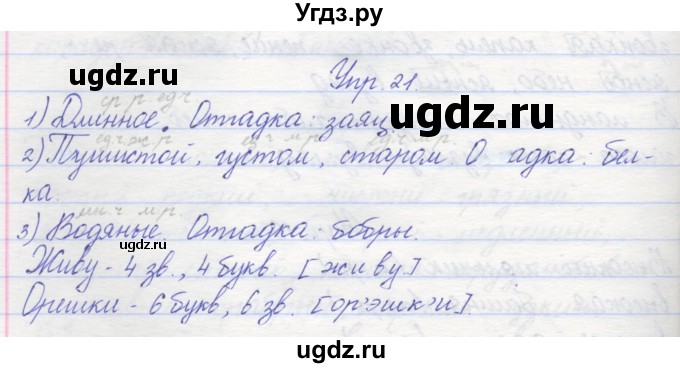 Угдз.ру
ugdz.ru
ugdz.ru
Упр. 21.
ср р ед ч
1) Длинное. Отгадка: заяц.
ед ч ж р ед ч м р. ед ч м р.
2) Пушистой, густом, старом О адка: бел-
ка.
мн. ч м р.
3) Водяные. Отгадка: бобры.
ugdz.ru
ugdz.ru
Живу - 4 зв., 4 букв. [живу]
Орешки - 6 букв, 6 зв. [ор'эшк'и]
ugdz.ru